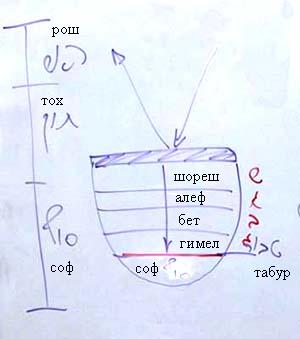 рош
ראש
тох
תוך
שореш ש
алеф א
бет ב
гимел ג
סוף
соф
соф סוף
טבור
табур